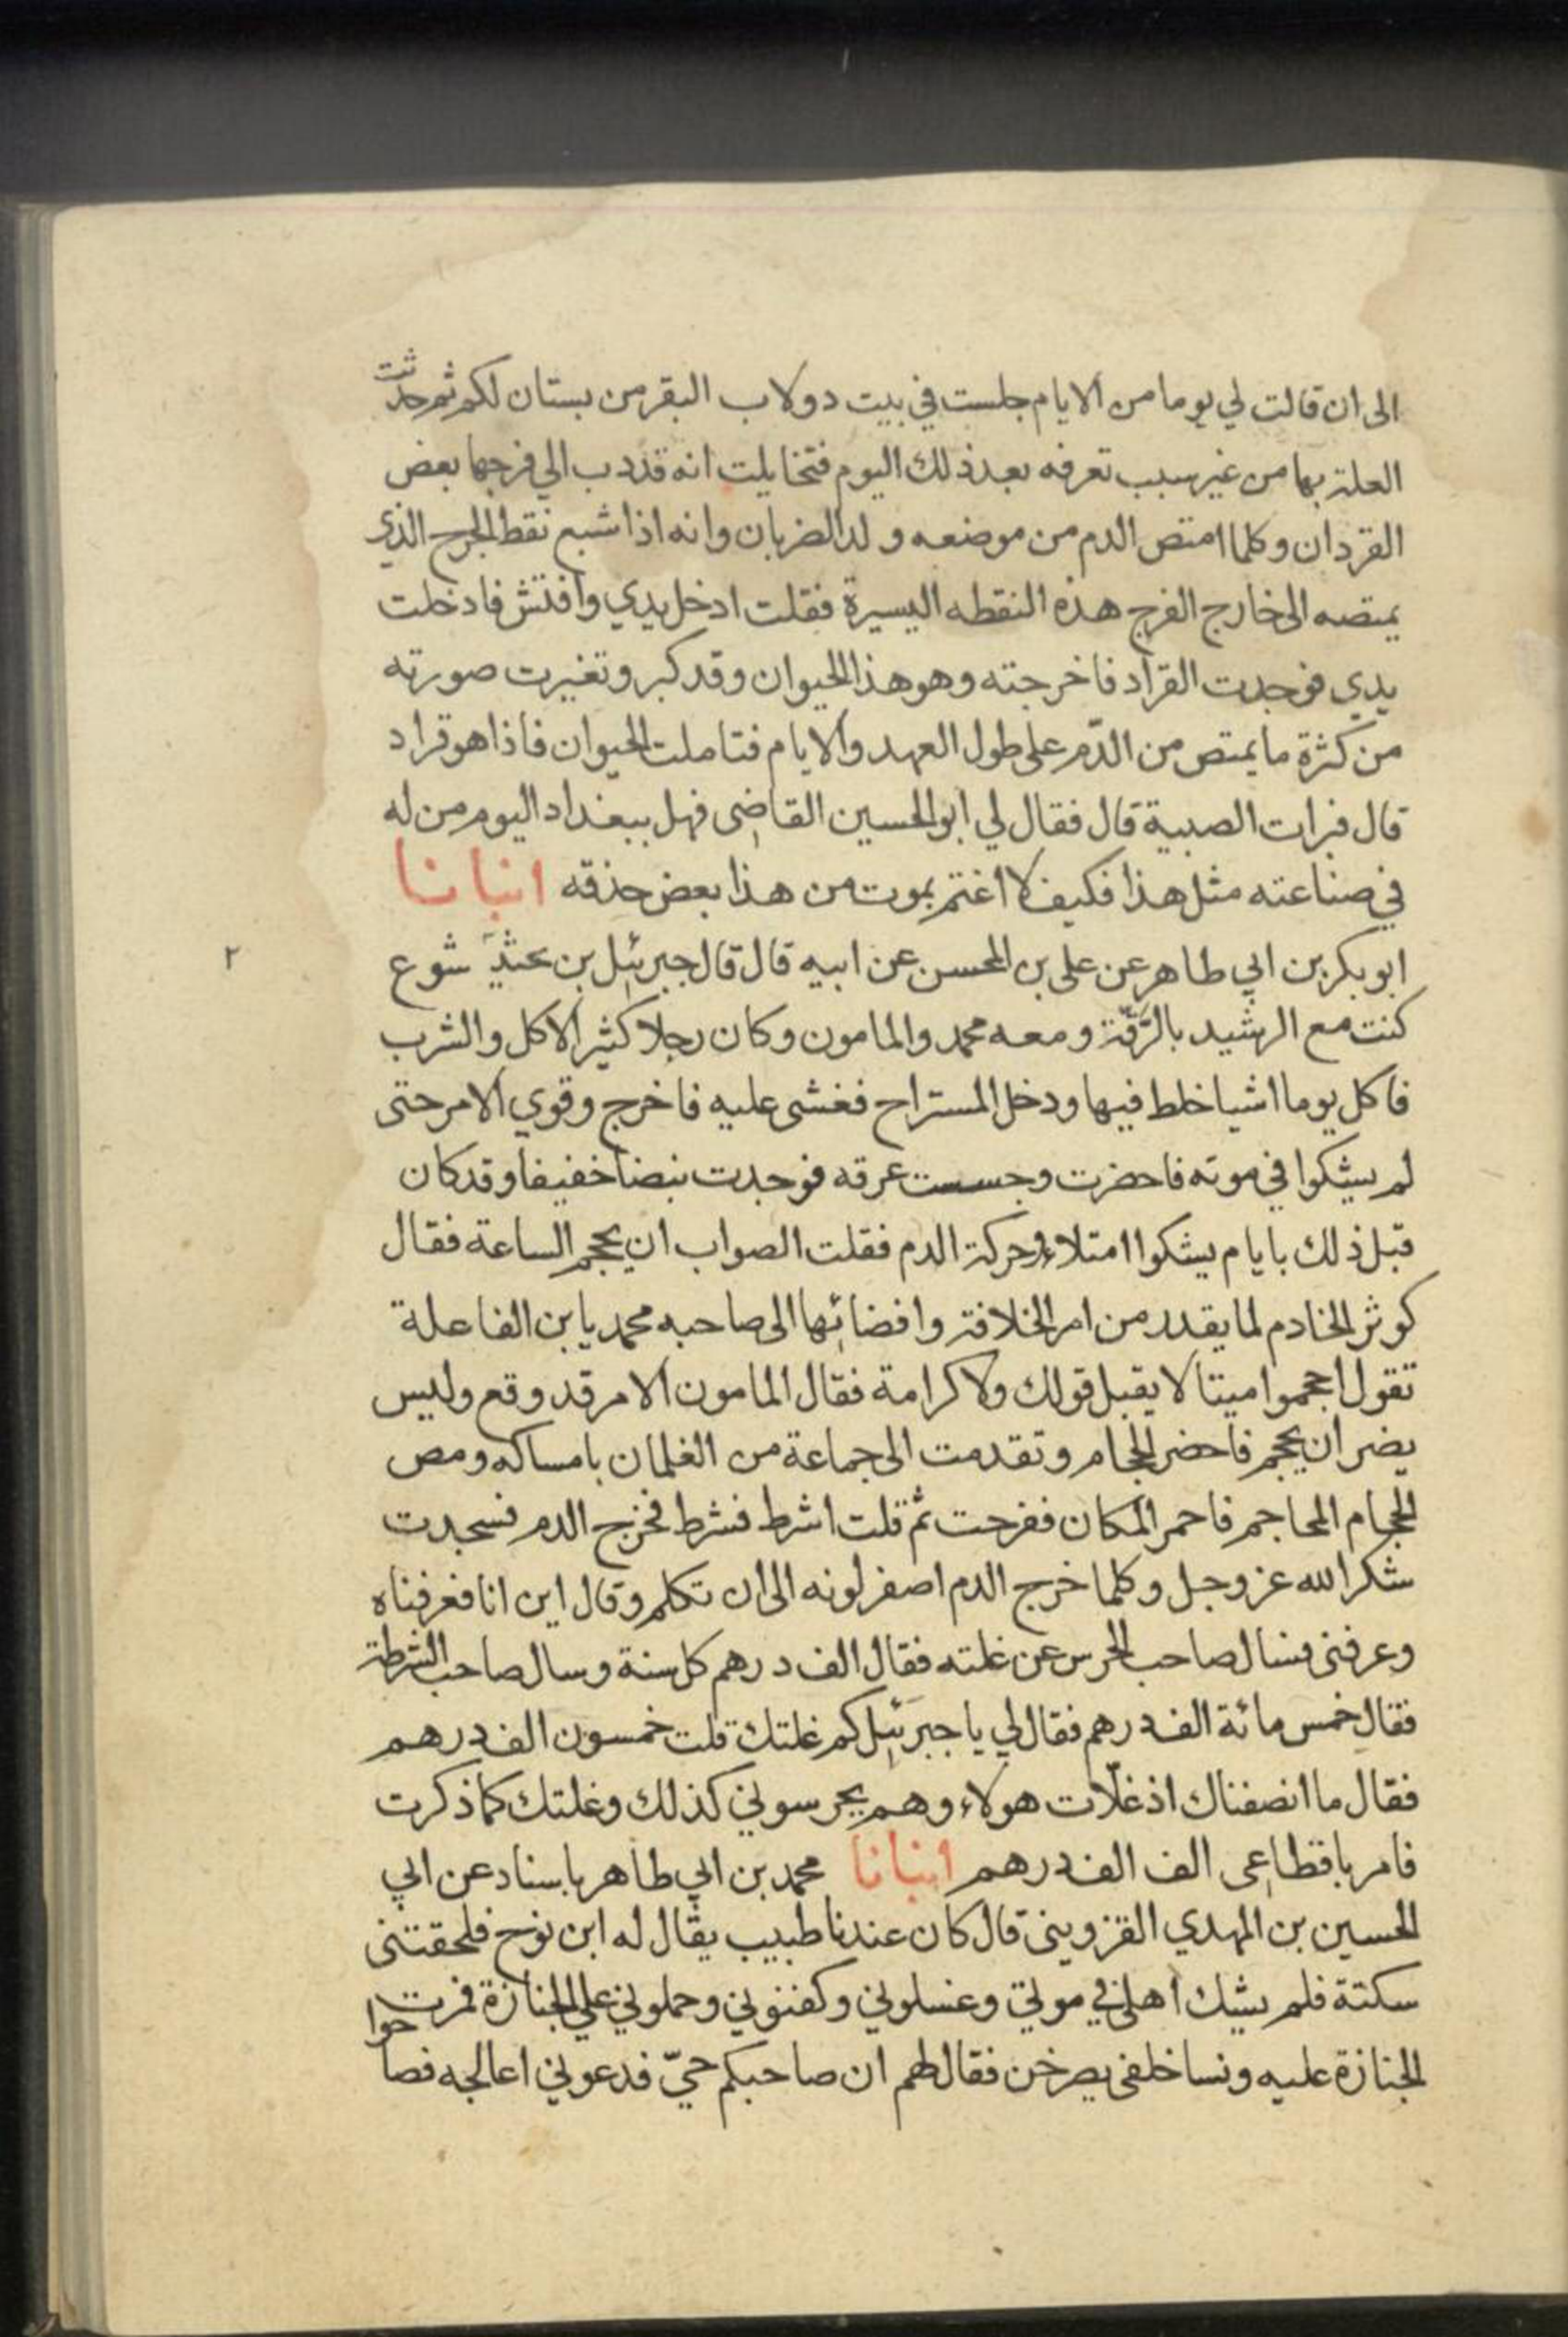 الى ان قالت لي يوما من الايام جلست في بيت دولاب البقر من بستان لكم ثم حدثت
العلة بها من غير سبب تعرفه بعد ذلك اليوم فتخايلت انه قد دب الي فرجها بعض
القردان وكلما امتص الدم من موضعه ولد الضربان وانه اذا شبع نقط الجرح الذي
يمتصه الى خارج الفرج هذه النقطه اليسيرة فقلت ادخل يدي وافتش فادخلت
يدي فوجدت القراد فاخرجته وهو هذا الحيوان وقد كبر وتغيرت صورته
من كثرة ما يمتص من الدّم على طول العهد والايام فتاملت الحيوان فاذا هو قراد
قال فبرات الصبية قال فقال لي ابو الحسين القاضي فهل ببغداد اليوم من له
في صناعته مثل هذا فكيف لا اغتم بموت من هذا بعض حذقه انبانا
ابو بكر بن ابي طاهر عن على بن المحسن عن ابيه قال قال جبرئيل بن شوع
٢
كنت مع الرشيد بالرَّقّة ومعه محمد والمامون وكان رجلا كثير الاكل والشرب
فاكل يوما اشيا خلط فيها ودخل المستراح فغشى عليه فاخرج وقوي الامر حتى
لم يشكوا في موته فاحضرت وجسست عرقه فوجدت نبضا خفيفا وقد كان
قبل ذلك بايام يشكوا امتلاء وحركة الدم فقلت الصواب ان يحجم الساعة فقال
كوثر الخادم لما يقدر من امر الخلافة وافضائها الى صاحبه محمد يا بن الفاعلة
تقول احجموا ميتا لا يقبل قولك ولا كرامة فقال المامون الامر قد وقع وليس
يضر ان يحجم فاحضر الحجام وتقدمت الى جماعة من الغلمان بامساكه ومص
الحجام المحاجم فاحمر المكان ففرحت ثم قلت اشرط فشرط فخرج الدم فسجدت
شكرا لله عز وجل وكلما خرج الدم اصفر لونه الى ان تكلم وقال اين انا فعرفناه
وعرفنى فسال صاحب الحرس عن غلته فقال الف درهم كل سنة وسال صاحب الشرطة
فقال خمس مائة الف درهم فقال لي يا جبرئيل كم غلتك قلت خمسون الف درهم
فقال ما انصفناك اذ غلّات هولاء وهم يحرسوني كذلك وغلتك كما ذكرت
فامر باقطاعى الف الف درهم انبانا محمد بن ابي طاهر باسناد عن ابي
الحسين بن المهدي القزوينى قال كان عندنا طبيب يقال له ابن نوح فلحقتنى
سكتة فلم يشك اهلى في موتي وغسلوني وكفنوني وحملوني علي الجنازة فمرت
الجنازة عليه ونسا خلفى يصرخن فقال لهم ان صاحبكم حيّ فدعوني اعالجه فصاحوا